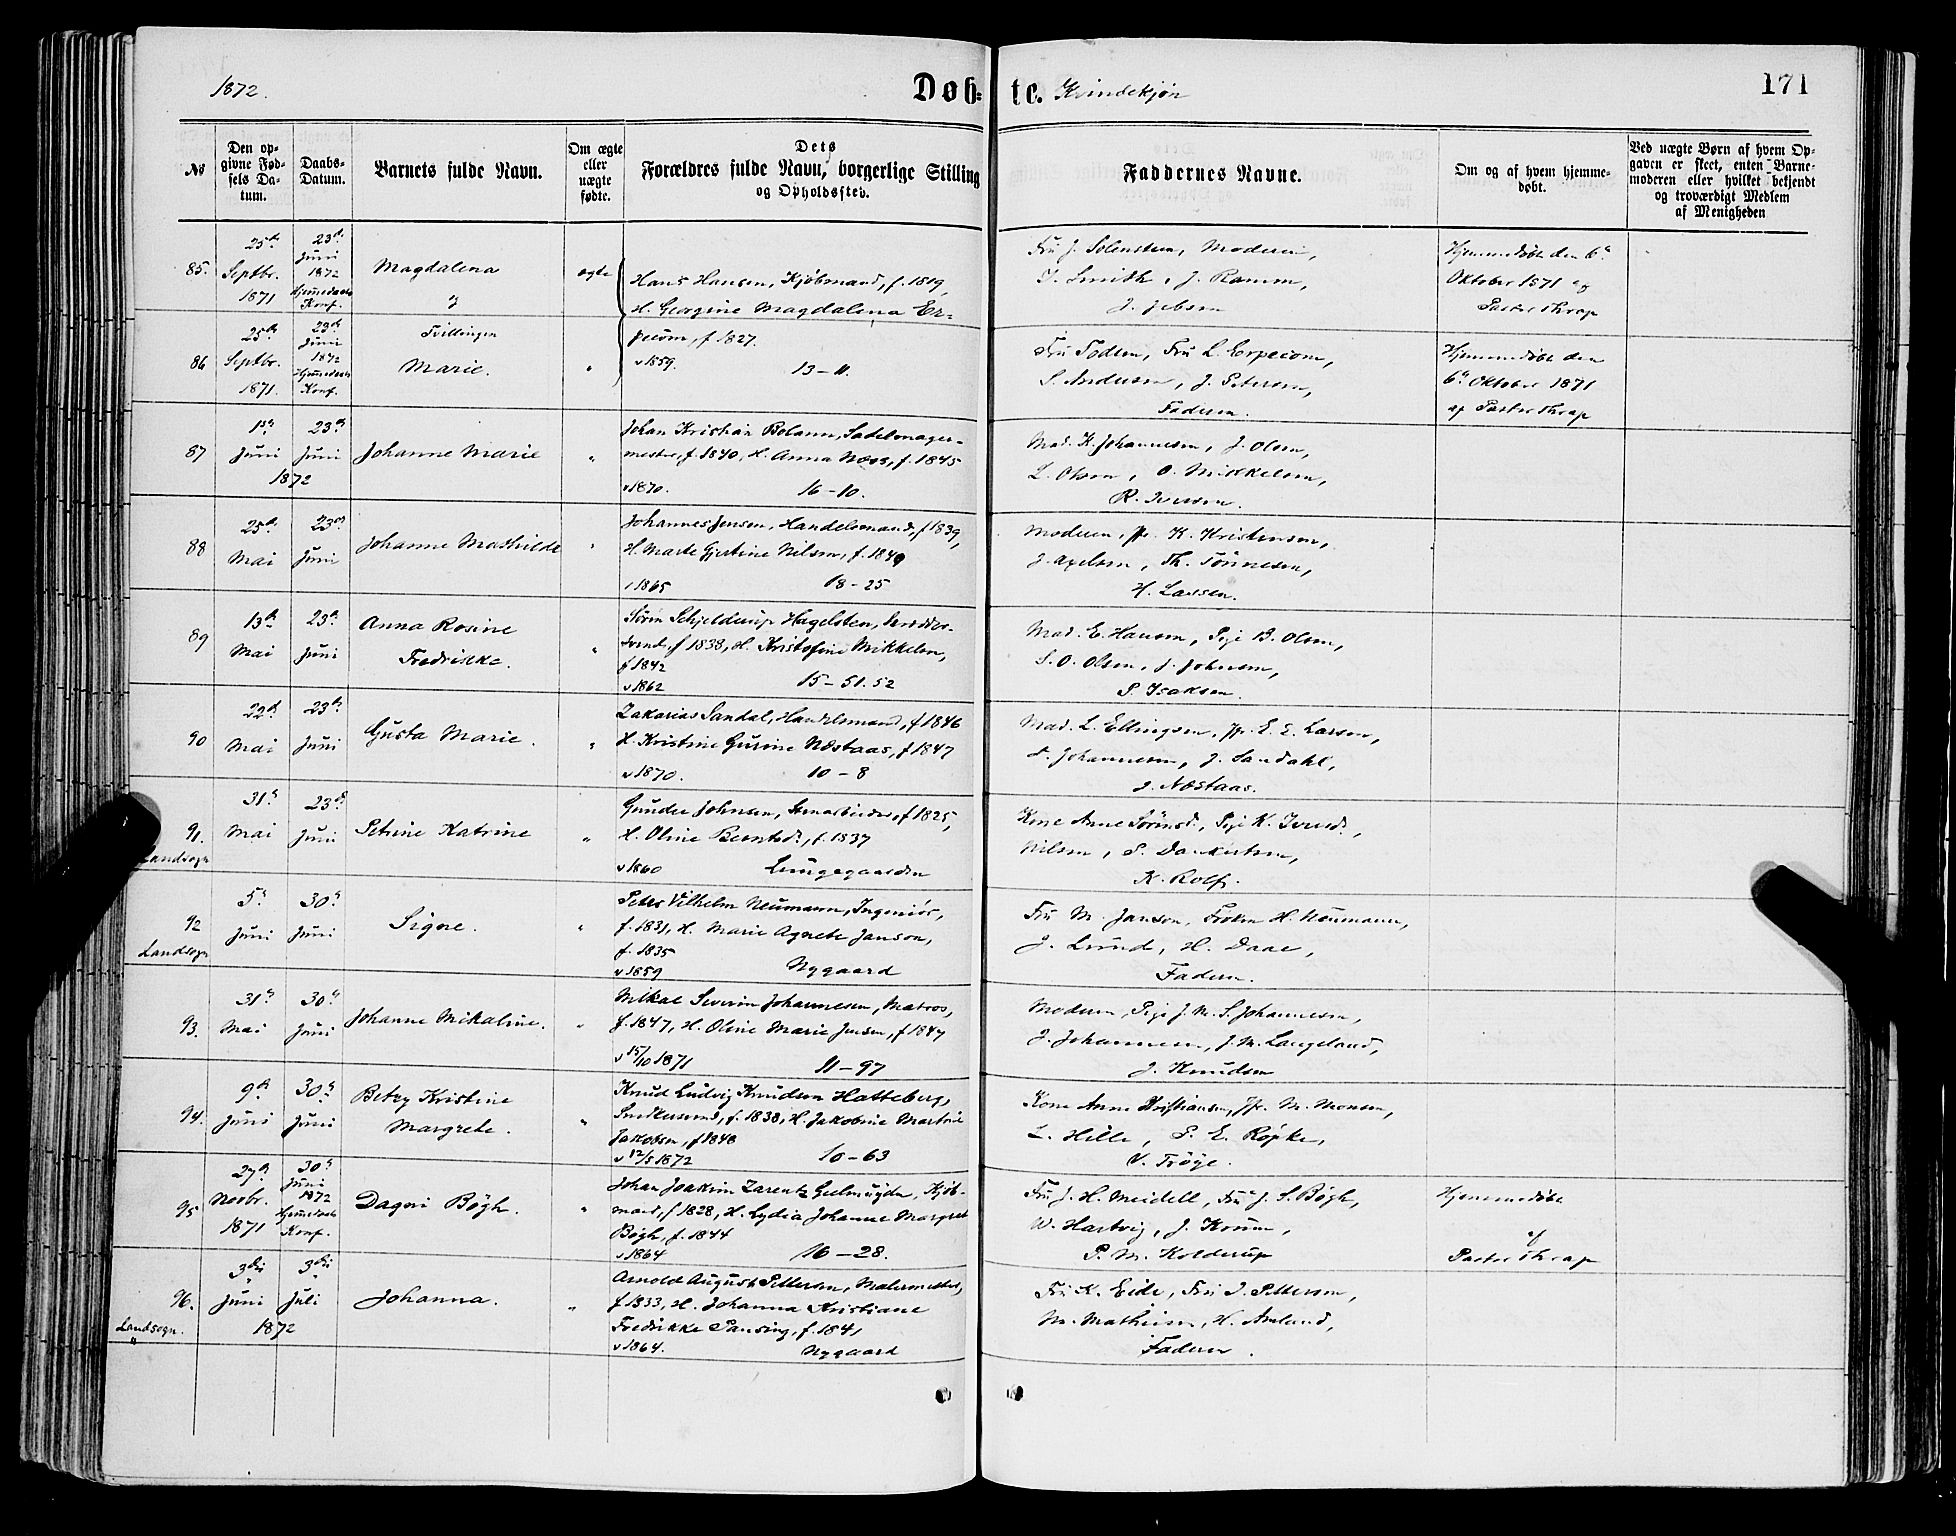 1872.
Døb-
te. Kvindekjøn
171
No
Den op-
givne Fød-
sels Da-
tum.
Daabs-
Datum.
Barnets fulde Navn.
Om ægte
eller
uægte
fødte.
Dets
Forældres fulde Navn, borgerlige Stilling
og Opholdssted.
Faddernes Navne.
Om og af hvem hjemme-
døbt.
Ved uægte Børn af hvem Op-
gaven er skeet, enten Barne-
moderen eller hvilket bekjendt
og troværdigt Medlem
af Menigheden
85.
25de
Septbr.
1871
23de
Juni
1872
Hjemmedaabs
Konf.
Magdalena
&
ægte
Hans Hansen, Kjøbmand, f. 1819,
H. Georgine Magdalena Er-
pecom, f 1827.
v 1859. 13-11.
Fru J. Solensten, Moderen,
T. Smith, J. Ramm,
J. Jebsen
Hjemmedøbt den 6te
Oktober 1871 af
Pastor Thrap
86
25de
Septbr.
1871.
23de
Juni
1872
Hjemmedaabs
Konf.
Tvillingen
Marie.
"
Fru Todsen, Fru L. Erpecom,
S. Andersen, J. Petersen,
Faderen.
Hjemmedøbt den
6te Oktober 1871
af Pastor Thrap
87
1ste
Juni
1872
23de
Juni
Johanne Marie
"
Johan Kristian Bolann, Sadelmager-
mester, f. 1840, H. Anna Næss, f. 1845
v 1870. 16-10.
Mad. K. Johannesen, J. Olsen,
L. Olsen, O. Mikkelsen,
R. Iversen.
88
25de
Mai
23de
Juni
Johanne Mathilde
"
Johannes Jensen, Handelsmand, f 1839,
H. Marte Gjertine Nilsen, f. 1840
v 1865 18-25
Moderen, Jfr. K. Kristensen,
J. Axelsen, Th. Tönnesen,
H. Larsen.
89
13de
Mai
23de
Juni
Anna Rosine
Fredrikke.
"
Sörin Schjelderup Hagelsten,
svend, f 1838, H. Kristofine Mikkelsen,
f 1842
v 1862 15-51.52
Mad. E. Hansen, Pige B. Olsen,
S. O. Olsen, J. Johnsen,
P. Isaksen.
90
22de
Mai
23de
Juni
Gusta Marie.
"
Zakarias Sandal, Handelsmand, f 1846
H. Kristine Gurine Næstaas, f 1847
v 1870. 10-8
Mad. L. Ellingsen, Jfr. E. E. Larsen,
A. Johannesen, J. Sandahl,
J. Næstaas.
91.
Landsogn
31te
Mai
23de
Juni
Petrine Katrine
"
Gunder Johnsen, Stenarbeider, f 1825,
H. Oline Berntsdr, f. 1837
v 1860 Lungegaarden
Kone Anne Sörensdr, Pige K. Iversdr,
Nilsen, P. Dankertsen,
K. Rolf.
92
Landsogn
5te
Juni
30te
Juni
Signe.
"
Peter Vilhelm Neumann, Ingeniör,
f. 1831, H. Marie Agnete Janson,
f. 1835
v 1859 Nygaard
Fru M. Janson, Fröken H. Neumann,
J. Lund, H. Daae,
Faderen.
93.
31te
Mai
30te
Juni
Johanne Mikaline.
"
Mikal Severin Johannesen, Matros,
f. 1847, H. Oline Marie Jensen, f 1847
v 15/10 1871 11-97
Moderen, Pige J. M. S. Johannesen,
J. Johannesen, J. M. Langeland,
J. Knudsen
94.
9de
Juni
30te
Juni
Betzy Kristine
Margrete.
"
Knud Ludvig Knudsen Hatteberg,
Snedkersvend, f. 1838, H. Jakobine Martine
Jakobsen, f 1848
v 12/5 1872 10-63
Kone Anne Kristiansen, Jfr. M. Monsen,
L. Hille, P. E. Röpke,
V. Tröye.
95
27de
Novbr.
1871
30te
Juni
1872
Hjemmedaabs
Konf.
Dagni Bögh.
"
Johan Joakim Zarentz Gelmuyden, Kjöb-
mand, f 1828, H. Lydia Johanne Margret
Bögh, f. 1844
v 1864 16-28.
Fru J. H. Meidell, Fru J. S. Bögh,
W. Hartvig, J. Krum,
P. M. Kolderup
Hjemmedöbt
af
Pastor Thrap
96.
Landsogn.
3die
Juni
1872
3die
Juli
Johanna.
"
Arnold August Pettersen, Malermester,
f 1833, H. Johanna Kristiane
Fredrikke Pansing, f. 1841
v 1864. Nygaard
Fru K. Eide, Fru J. Pettersen,
M. Mathisen, H. Amlund,
Faderen.